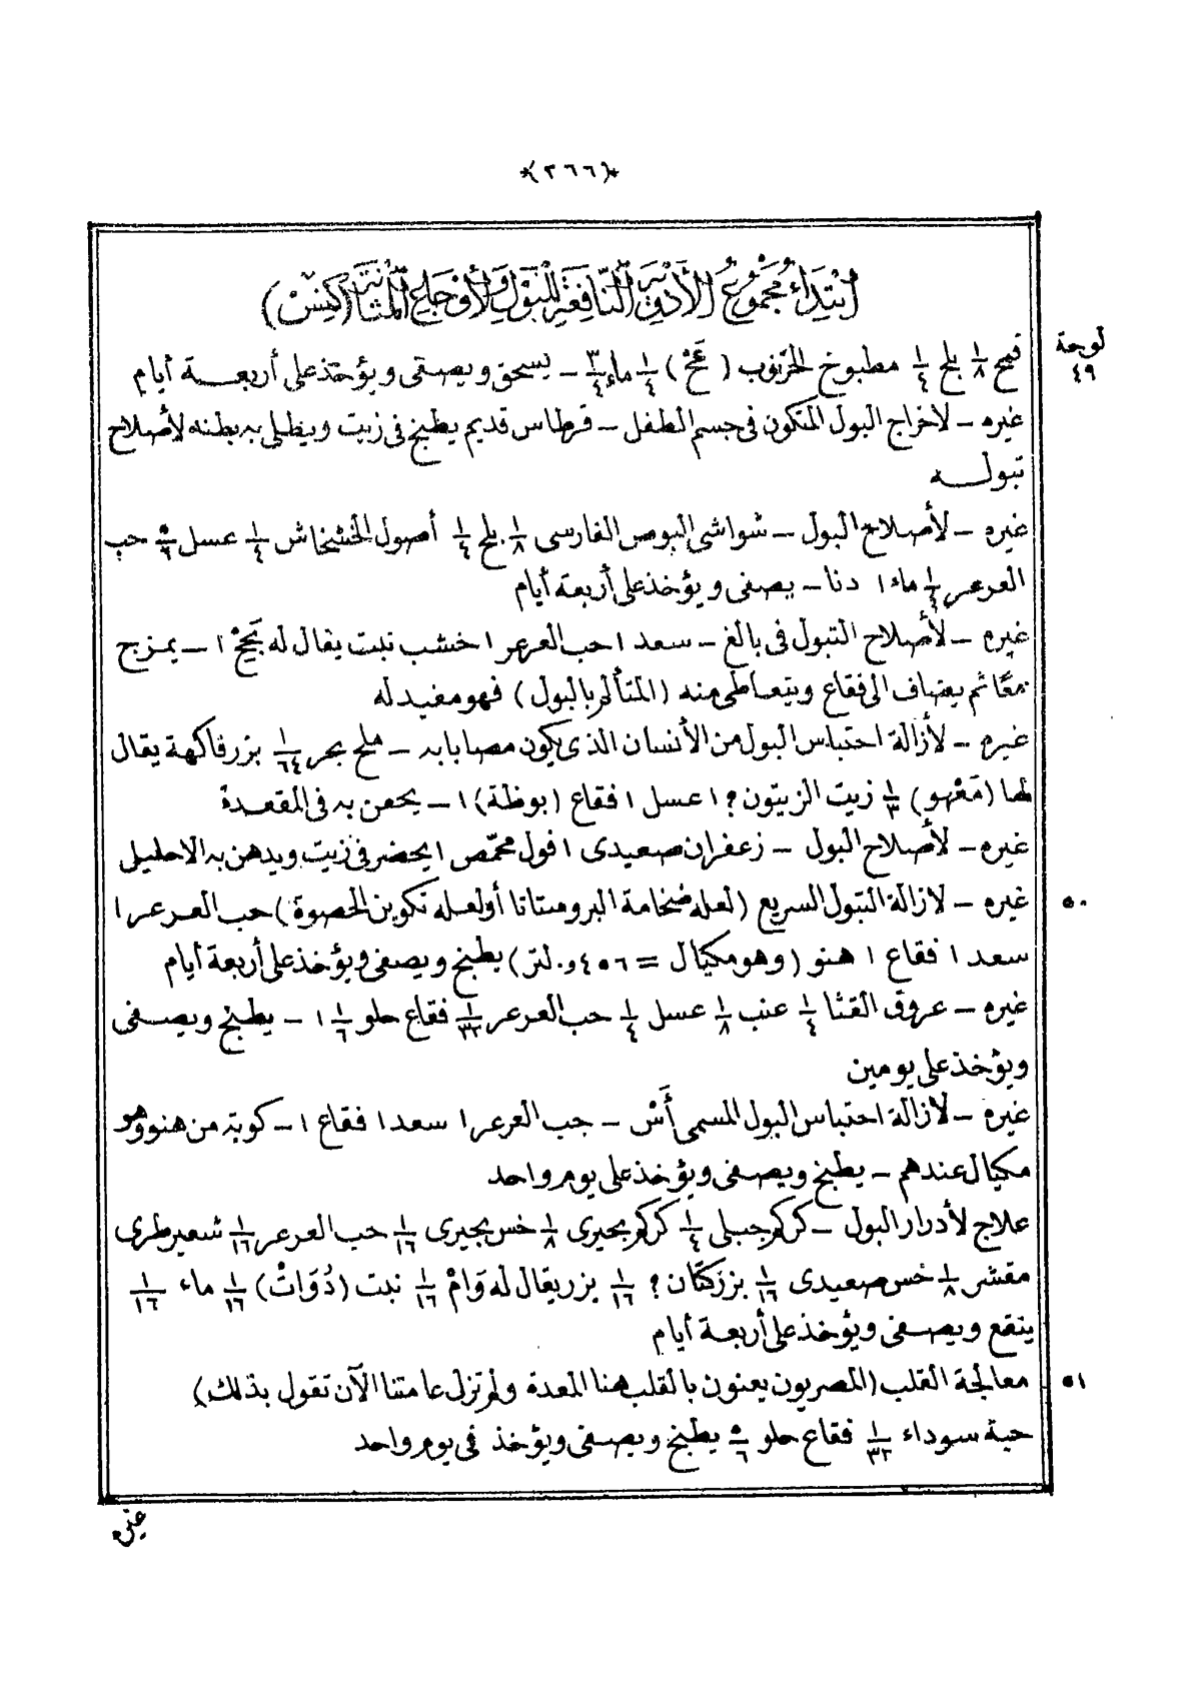 *(٢٦٦)*
ابْتِدَاءُ مَجْمُوعِ الأَدْوِيَةِ النَّافِعَةِ لِلْبَوْلِ وَلِأَوْجَاعِ الْمَثَانَةِ (كِنِسْ)
لوحة ٤٩
قمح ١/٨ بلح ١/٤ مطبوخ الخرنوب (عَحْ) ١/٤ ماء ٣/٤ – يسحق ويصفى ويؤخذ على أربعة أيام
غيره – لاخراج البول المتكون فى جسم الطفل – قرطاس قديم يطبخ فى زيت ويطلى به بطنه لأصلاح
تبوله
غيره – لأصلاح البول – شواشى البوص الفارسى ١/٨ بلح ١/٤ أصول الخشخاش ١/٤ عسل ٥/٦ حب
العرعر ١/٤ ماء ١ دنا – يصفى ويؤخذ على أربعة أيام
غيره – لأصلاح التبول فى بالغ – سعد ١ حب العرعر ١ خشب نبت يقال له بَحِحْ ١ – يمزج
معًا ثم يضاف الى فقاع ويتعاطى منه (المتألم بالبول) فهو مفيد له
غيره – لأزالة احتباس البول من الأنسان الذى يكون مصابا به – ملح بحر ١/٦٤ بزر فاكهة يقال
لها (مَعْهو) ١/٣ زيت الزيتون؟ ١ عسل ١ فقاع (بوظة) ١ – يحقن به فى المقعدة
غيره – لأصلاح البول – زعفران صعيدى ١ فول محمّص ١ يحضر فى زيت ويدهن به الاحليل
٥٠
غيره – لازالة التبول السريع (لعله ضخامة البروستاتا أو لعله تكوين الحصوة) حب العرعر ١
سعد ١ فقاع ١ هنو (وهو مكيال = ٤٥٦و٠ لتر) يطبخ ويصفى ويؤخذ على أربعة أيام
غيره – عروق القثا ١/٤ عنب ١/٨ عسل ١/٤ حب العرعر ١/٣٢ فقاع حلو ١/٦ ١ – يطبخ ويصفى
ويؤخذ على يومين
غيره – لازالة احتباس البول المسمى أَشْ – حب العرعر ١ سعد ١ فقاع ١ – كوبة من هنو وهو
مكيال عندهم – يطبخ ويصفى ويؤخذ على يوم واحد
علاج لأدرار البول – كركم جبلى ١/٤ كركم بحيرى ١/٨ خس بحيرى ١/١٦ حب العرعر ١/١٦ شعير طرى
مقشر ١/٨ خس صعيدى ١/١٦ بزر كتان؟ ١/١٦ بزر يقال له وَامْ ١/١٦ نبت (دُوَاتْ) ١/١٦ ماء ١/١٦
ينقع ويصفى ويؤخذ على أربعة أيام
٥١
معالجة القلب (المصريون يعنون بالقلب هنا المعدة ولم تزل عامتنا الآن تقول بذلك)
حبة سوداء ١/٣٢ فقاع حلو ٥/٦ يطبخ ويصفى ويؤخذ فى يوم واحد
غيره